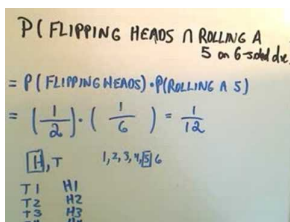 P(FLIPPING HEADS ∩ ROLLING A
5 on 6-sided die
= P(FLIPPING HEADS)·P(ROLLING A 5)
= (1/2)·(1/6) = 1/12
H, T 1, 2, 3, 4, 5, 6
T1 H1
T2 H2
T3 H3